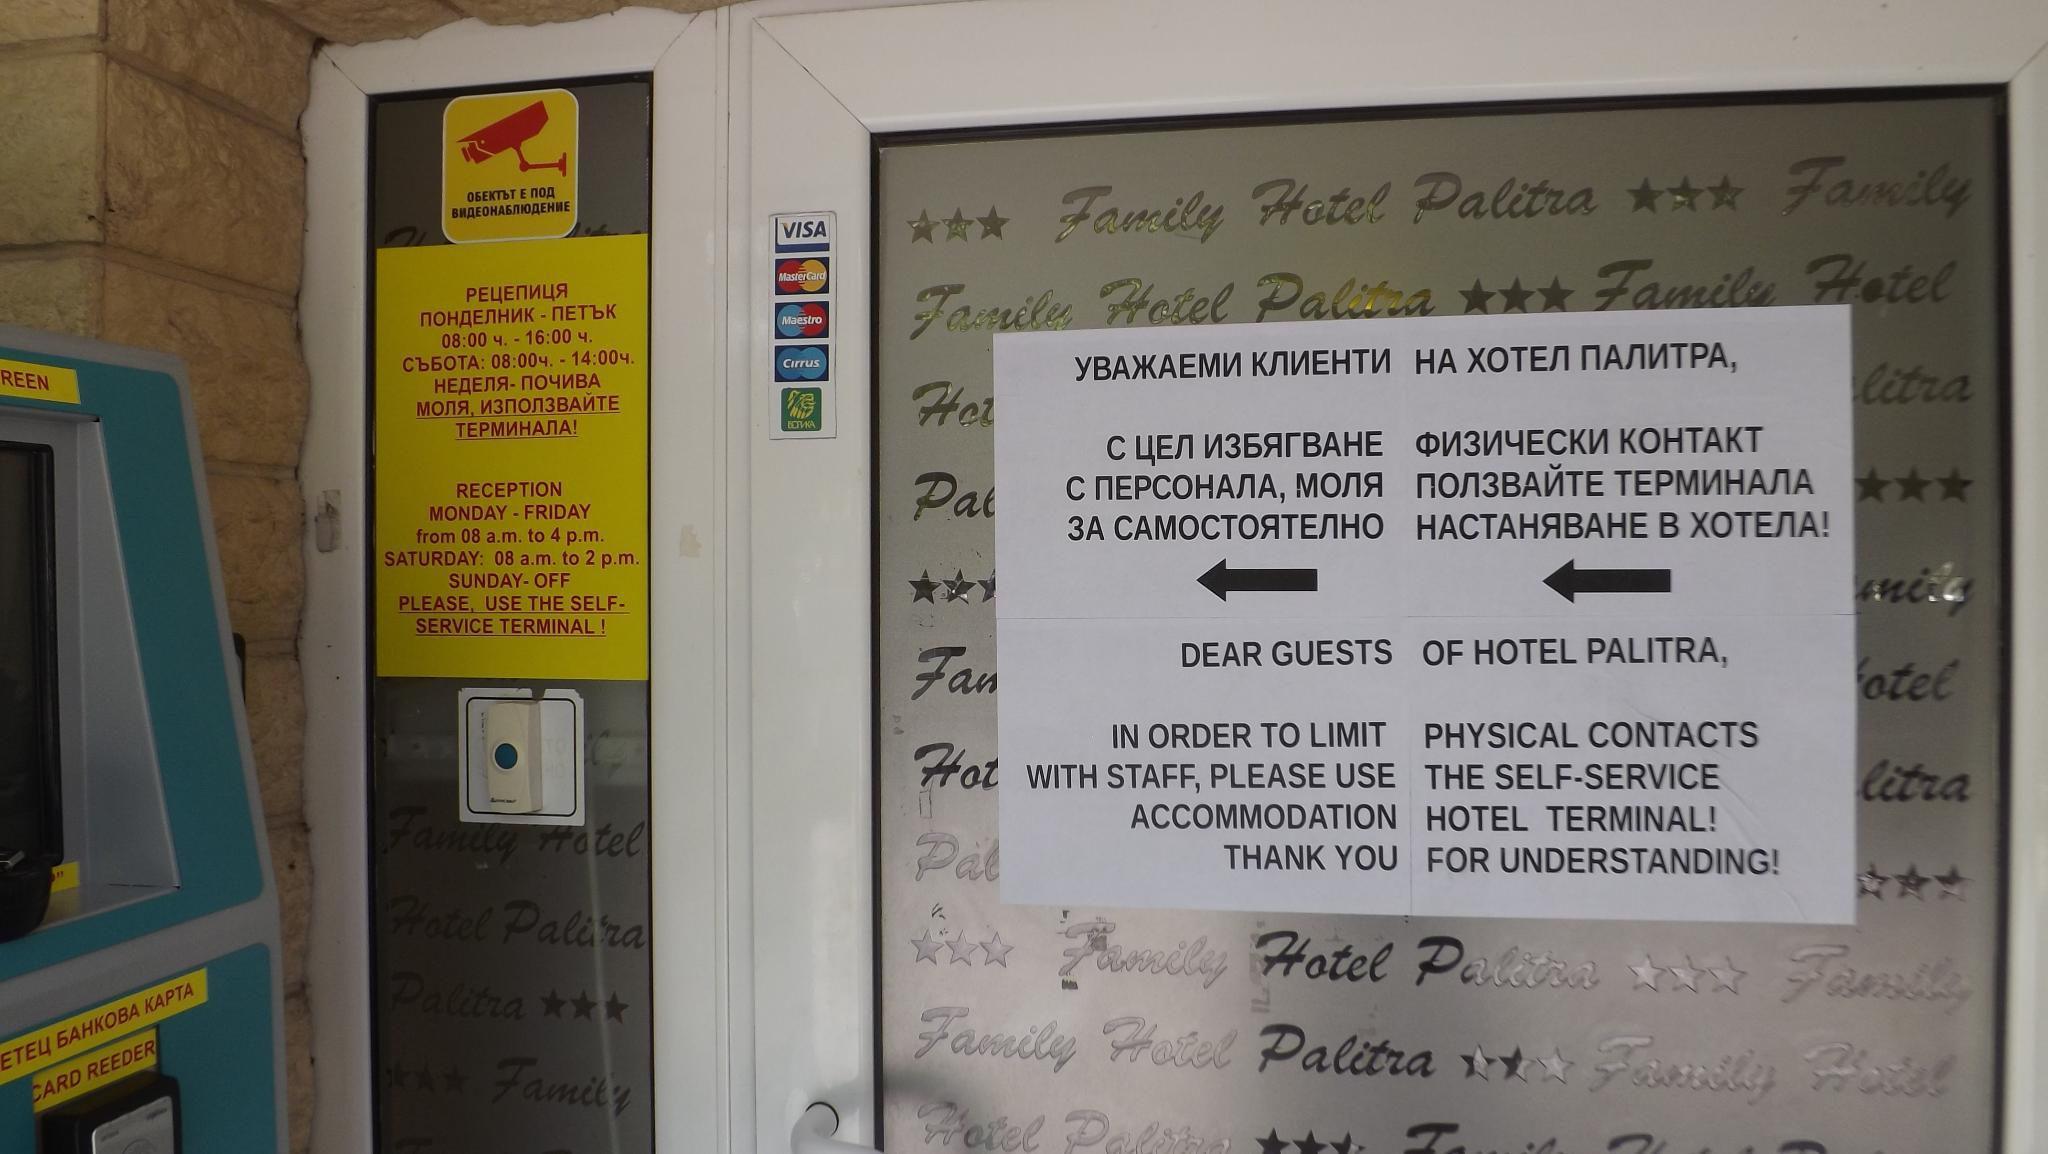 ОБЕКТЪТ Е ПОД
ВИДЕОНАБЛЮДЕНИЕ
РЕЦЕПИЦЯ
ПОНДЕЛНИК - ПЕТЪК
08:00 ч. - 16:00 ч.
СЪБОТА: 08:00ч. - 14:00ч.
НЕДЕЛЯ- ПОЧИВА
МОЛЯ, ИЗПОЛЗВАЙТЕ
ТЕРМИНАЛА!
RECEPTION
MONDAY - FRIDAY
from 08 a.m. to 4 p.m.
SATURDAY: 08 a.m. to 2 p.m.
SUNDAY- OFF
PLEASE, USE THE SELF-
SERVICE TERMINAL !
Family Hotel
Hotel Palitra
Palitra ★★★
★★★ Family
REEN
ЕТЕЦ БАНКОВА КАРТА
CARD REEDER
VISA
MasterCard
Maestro
Cirrus
БОРИКА
★★★ Family Hotel Palitra ★★★ Family
Family Hotel Palitra ★★★ Family Hotel
УВАЖАЕМИ КЛИЕНТИ НА ХОТЕЛ ПАЛИТРА,
С ЦЕЛ ИЗБЯГВАНЕ ФИЗИЧЕСКИ КОНТАКТ
С ПЕРСОНАЛА, МОЛЯ ПОЛЗВАЙТЕ ТЕРМИНАЛА
ЗА САМОСТОЯТЕЛНО НАСТАНЯВАНЕ В ХОТЕЛА!
DEAR GUESTS OF HOTEL PALITRA,
IN ORDER TO LIMIT PHYSICAL CONTACTS
WITH STAFF, PLEASE USE THE SELF-SERVICE
ACCOMMODATION HOTEL TERMINAL!
THANK YOU FOR UNDERSTANDING!
★★★ Family Hotel Palitra ★★★ Family
Family Hotel Palitra ★★★ Family Hotel
Hotel Palitra ★★★ Family Hotel